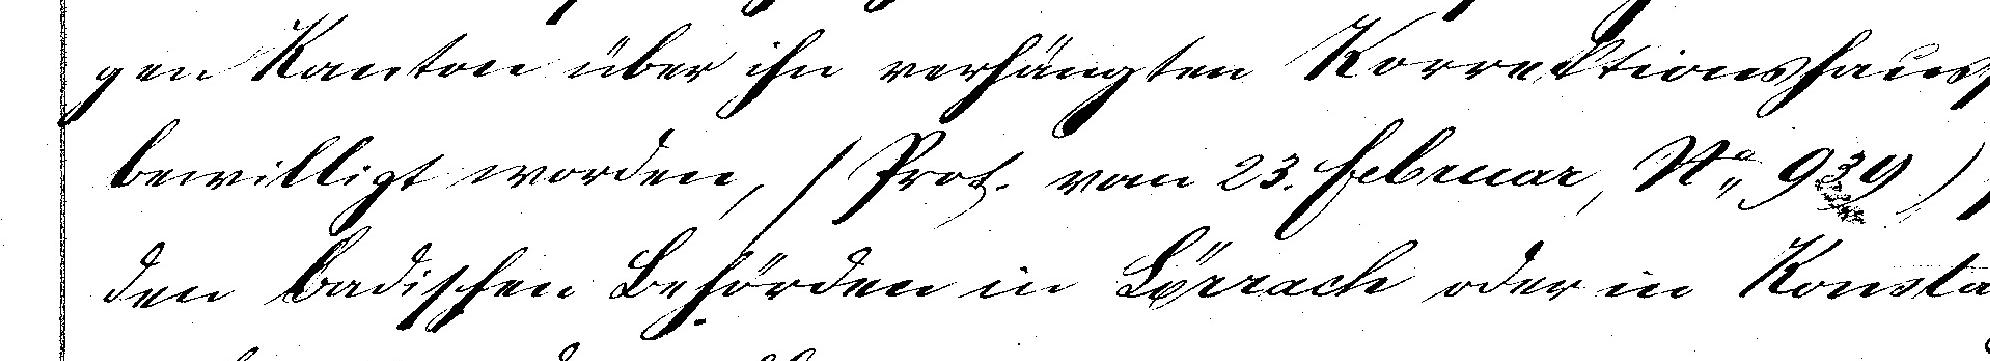 gen Kanton über ihn verhängten Korrektionshaus
bewilligt worden, (Prot. vom 23. Februar, No. 939)
den badischen Behörden in Lörrach oder in Konsta